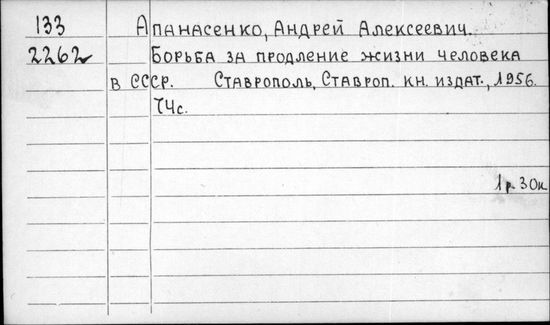 133 Апанасенко, Андрей Алексеевич.
2262 Борьба за продление жизни человека
в СССР. Ставрополь, Ставроп. кн. издат., 1956.
74с.
1 р. 30к